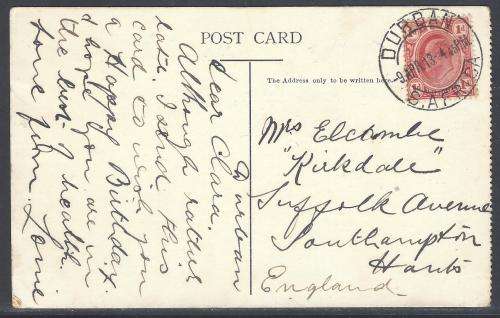 POST CARD
The Address only to be written here.
Durban
Dear Clara,
Although rather
late, I send this
card to wish you
a Happy Birthday.
I hope you are in
the best of health.
love from
Mrs Elcombe
"Kirkdale"
Suffolk Avenue
Southampton
Hants
England
DURBAN
9 APR 13
S. AFRICA